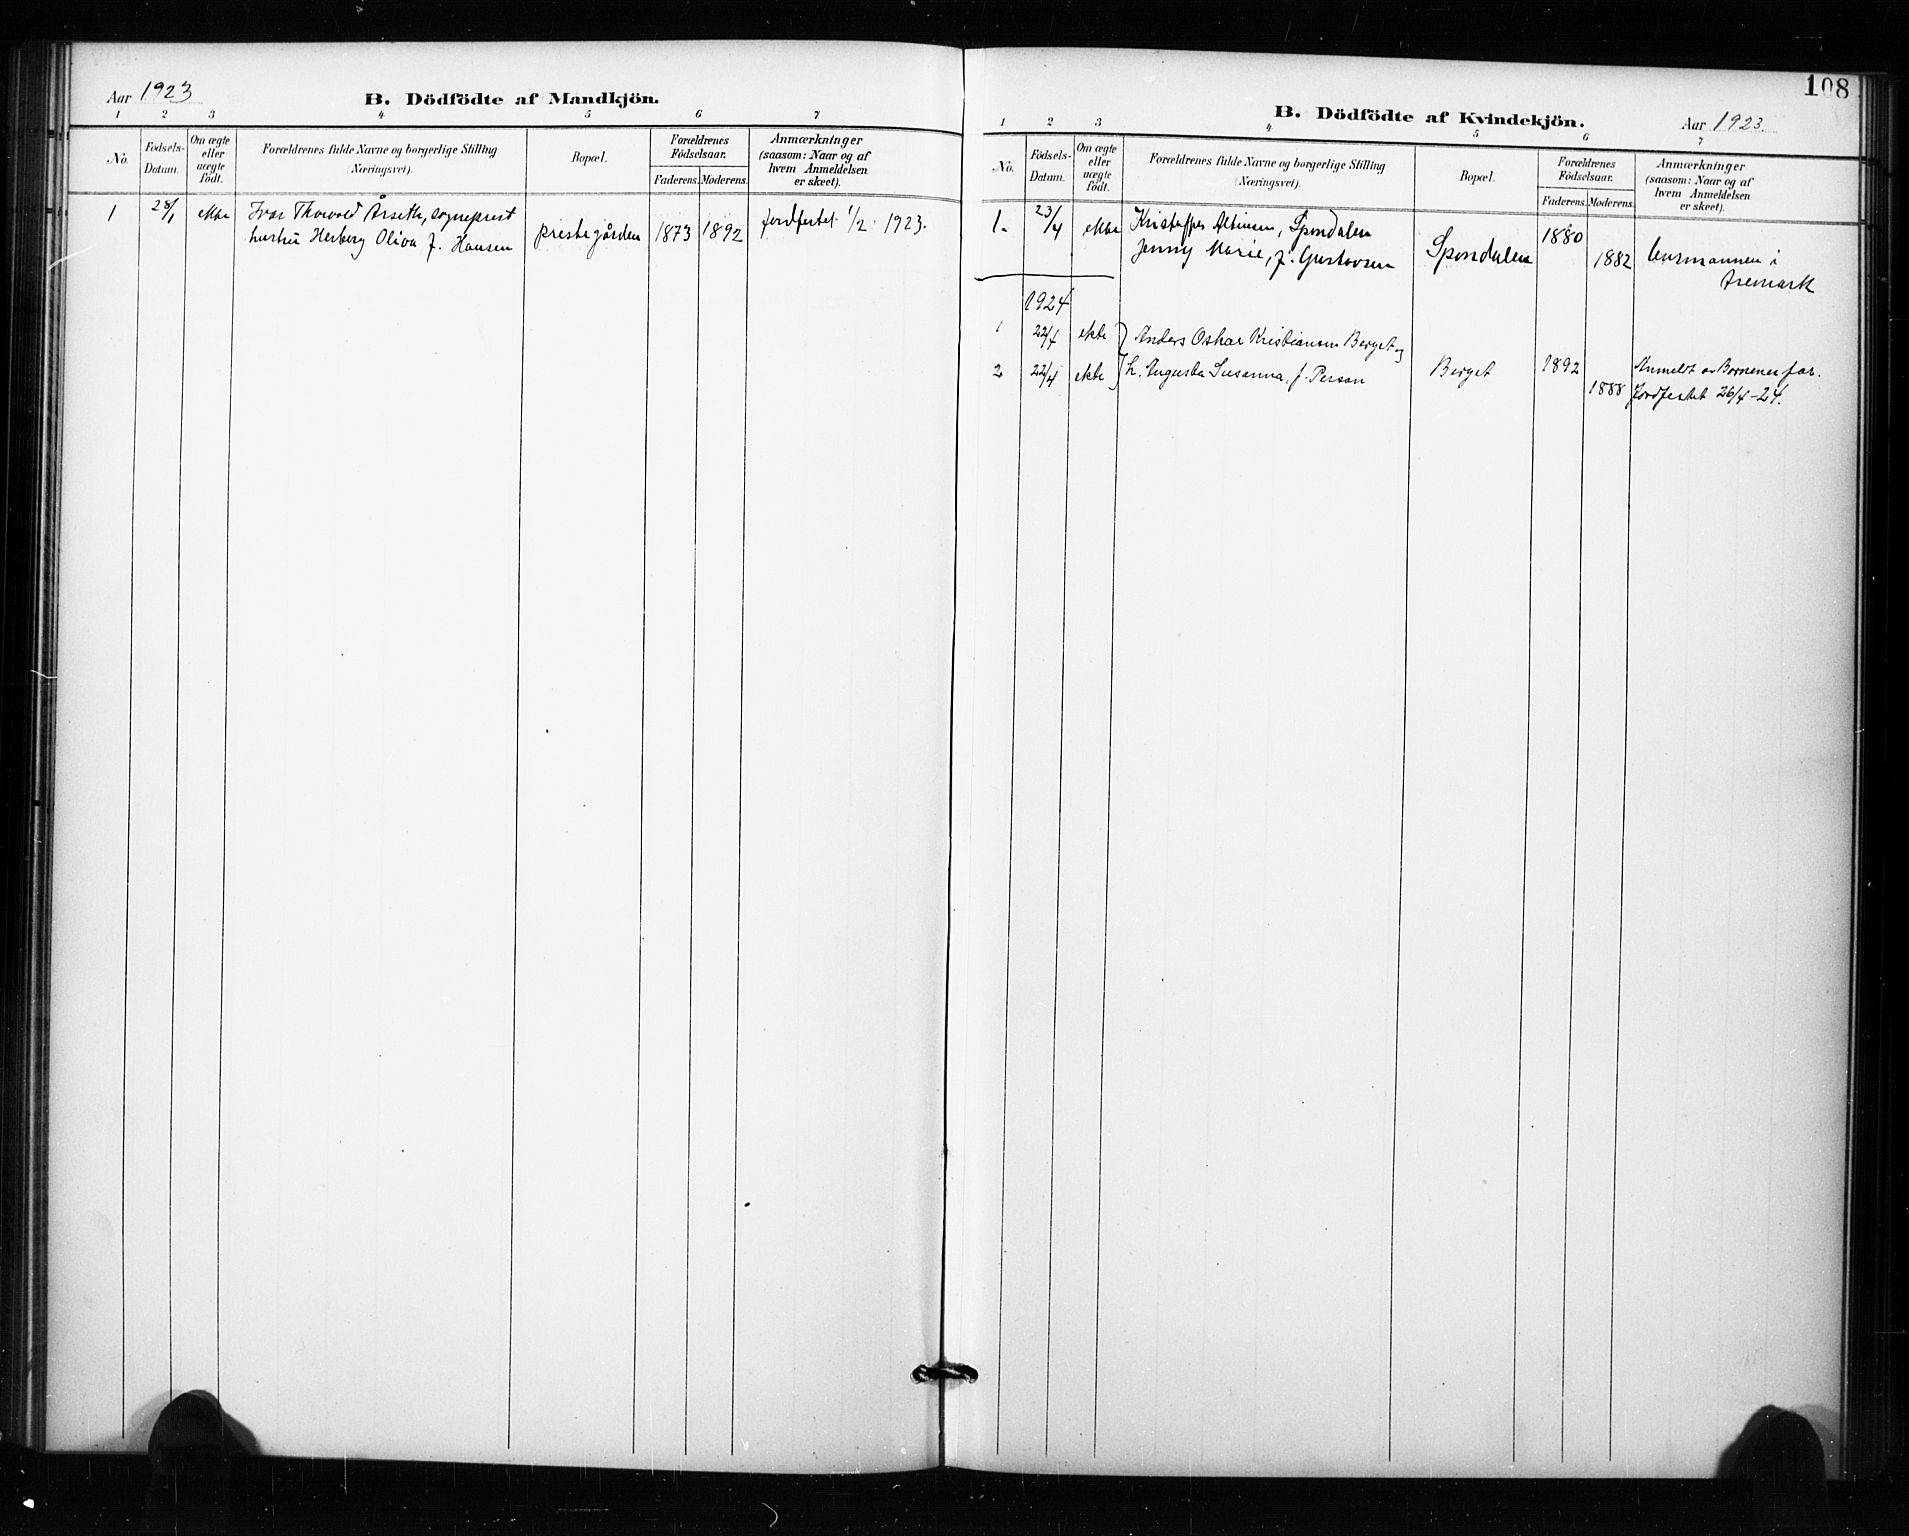 Aar 1923
B. Dödfödte af Mandkjön.
1 2 3 4 5 6 7
No.
Födsels-
Datum.
Om ægte
eller
uægte
födt.
Forældrenes fulde Navne og borgerlige Stilling
(Næringsvei).
Bopæl.
Forældrenes
Födselsaar.
Faderens. Moderens.
Anmærkninger
(saasom: Naar og af
hvem Anmeldelsen
er skeet).
1 28/1 ekte Ivar Thorvald Årseth, sogneprest
hustru Herborg Oliva f. Hansen prestegården 1873 1892 jordfestet 1/2 1923.
108
B. Dödfödte af Kvindekjön.
Aar 1923.
1 2 3 4 5 6 7
No.
Födsels-
Datum.
Om ægte
eller
uægte
födt.
Forældrenes fulde Navne og borgerlige Stilling
(Næringsvei).
Bopæl.
Forældrenes
Födselsaar.
Faderens. Moderens.
Anmærkninger
(saasom: Naar og af
hvem Anmeldelsen
er skeet).
1. 23/4 ekte Kristoffer Spondalen 1880
Jenny Marie, f. Gustavsen Spondalen 1882 lensmannen i
Aremark
1924
1 22/4 ekte Anders Oskar Kristiansen Berget og
2 22/4 ekte h. Augusta Susanna, f. Person Berget 1892 Anmeldt av Barnenes far.
1888 Jordfestet 26/4-24.